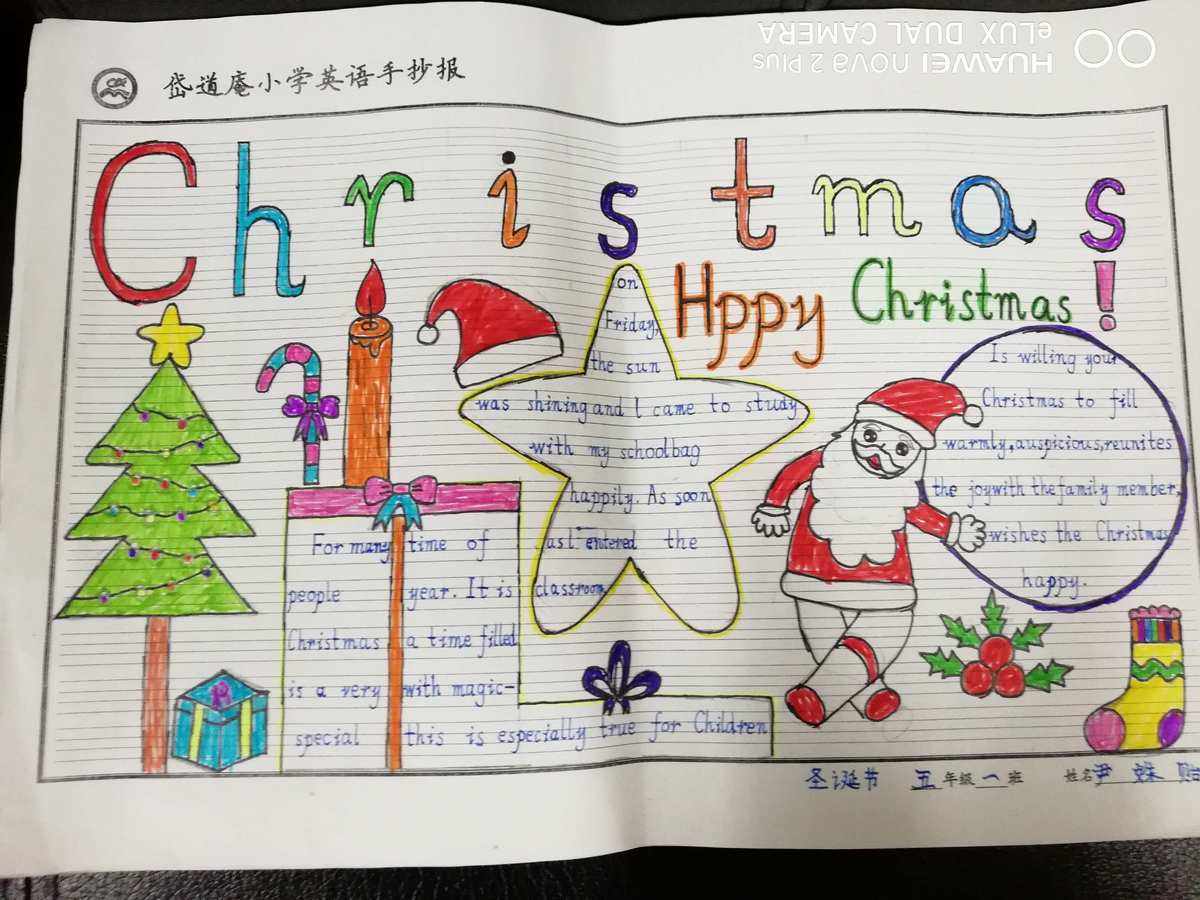 HUAWEI nova 2 Plus
eLUX DUAL CAMERA
岱道庵小学英语手抄报
Christmas
Hppy Christmas!
on
Friday,
the sun
was shining and l came to study
with my schoolbag
happily. As soon
as l entered the
classroom
Is willing your
Christmas to fill
warmly,auspicious,reunites
the joywith the family member,
wishes the Christmas
happy.
For many time of
people year. It is
Christmas a time filled
is a very with magic-
special this is especially true for Children
圣诞节 五年级一班 姓名尹